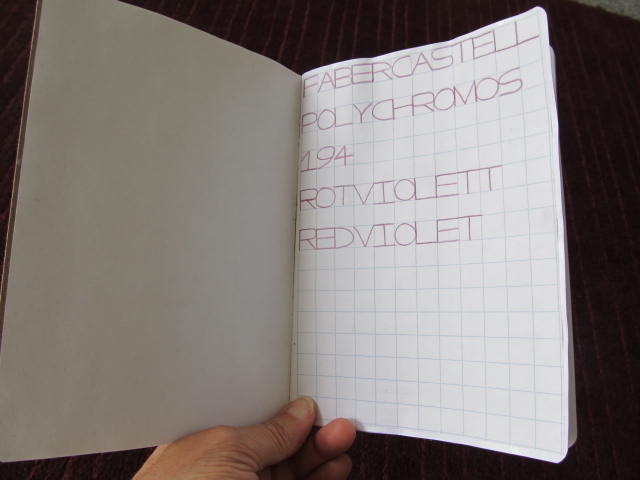 FABERCASTELL
POLYCHROMOS
194
ROTVIOLETT
REDVIOLET